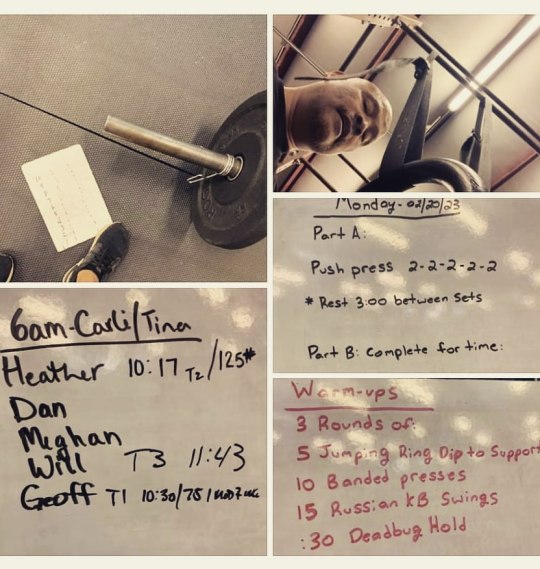 6am-Carli/Tina
Heather 10:17 T2/125#
Dan
Meghan
Will T3 11:43
Geoff T1 10:30/75/
Monday-02/20/23
Part A:
Push press 2-2-2-2-2
* Rest 3:00 between sets
Part B: Complete for time:
Warm-ups
3 Rounds of:
5 Jumping Ring Dip to Support
10 Banded presses
15 Russian KB Swings
:30 Deadbug Hold